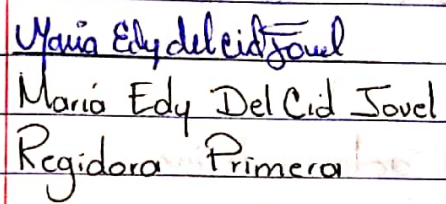 Maria Edy del cid Jovel
Maria Edy Del Cid Jovel
Regidora Primera